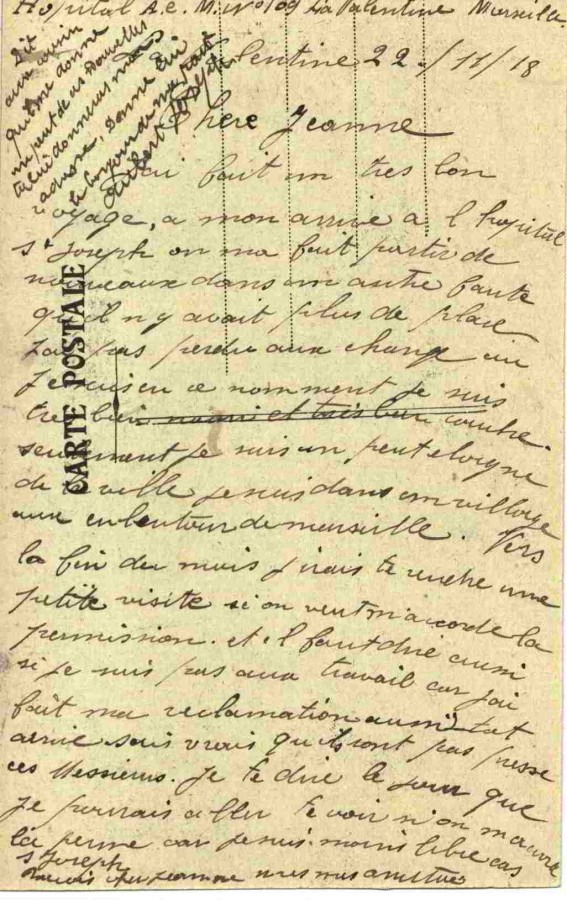 Hopital A.C. M. N° 109 La Valentine Marseille
Valentine 22 / 11 / 18
Chere Jeanne
J'ai fait un tres bon
voyage, a mon arrivé a l hopital
St Joseph on ma fait partir de
nouveaux dans un autre faute
qu'il n y avait plus de place
j'ai pas perdu aux change ou
Je suis en ce nomment je suis
tres bien nourri et tres bien couché.
seulement je suis un peut eloigne
de la ville je suis dans un village
aux enlentour de marseille. Vers
la fin du mois j irais te rendre une
petite visite si on veut m'acordé la
permission. et il faut dire aussi
si je suis pas aux travail car jai
fait ma reclamation aussi tot
arrivé sais vrais qu'ils sont pas pressé
ces Messieurs. Je te dire le jour que
je pourrais aller te voir si on m
la perme car je suis moins libre cas
St Joseph
CARTE POSTALE
Dit
aux cousin
qu'il me donne
un peut de ces nouvelles
tu lui donneras mon
adresse, Donne lui
le bonjour de ma part